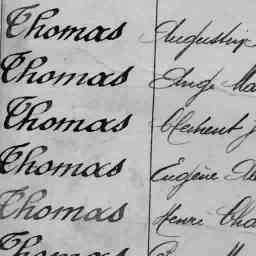 Thomas Augustin
Thomas Ange Ma
Thomas Clément J
Thomas Eugène Al
Thomas Henri Cha
Thomas